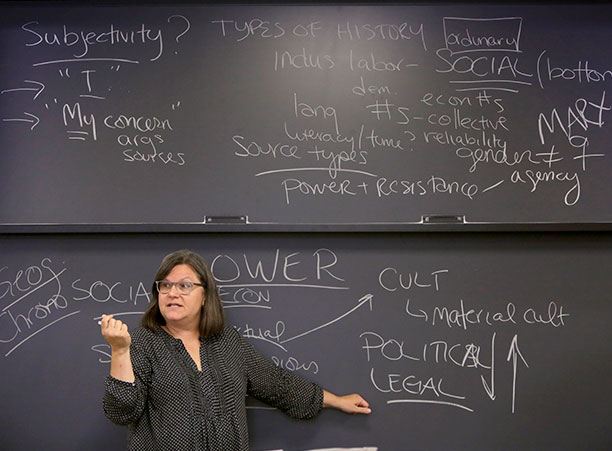 Subjectivity?
"I"
"My concern"
args
sources
TYPES OF HISTORY
ordinary
Indus labor-
SOCIAL (bottom
dem.
lang #s-collective
econ #s
literacy/time? reliability
MARY
Source types
gender ≠ ♀
agency
power + resistance
Geog
Chrono
SOCIAL
POWER
ECON
CULT
Material cult
POLITICAL
LEGAL